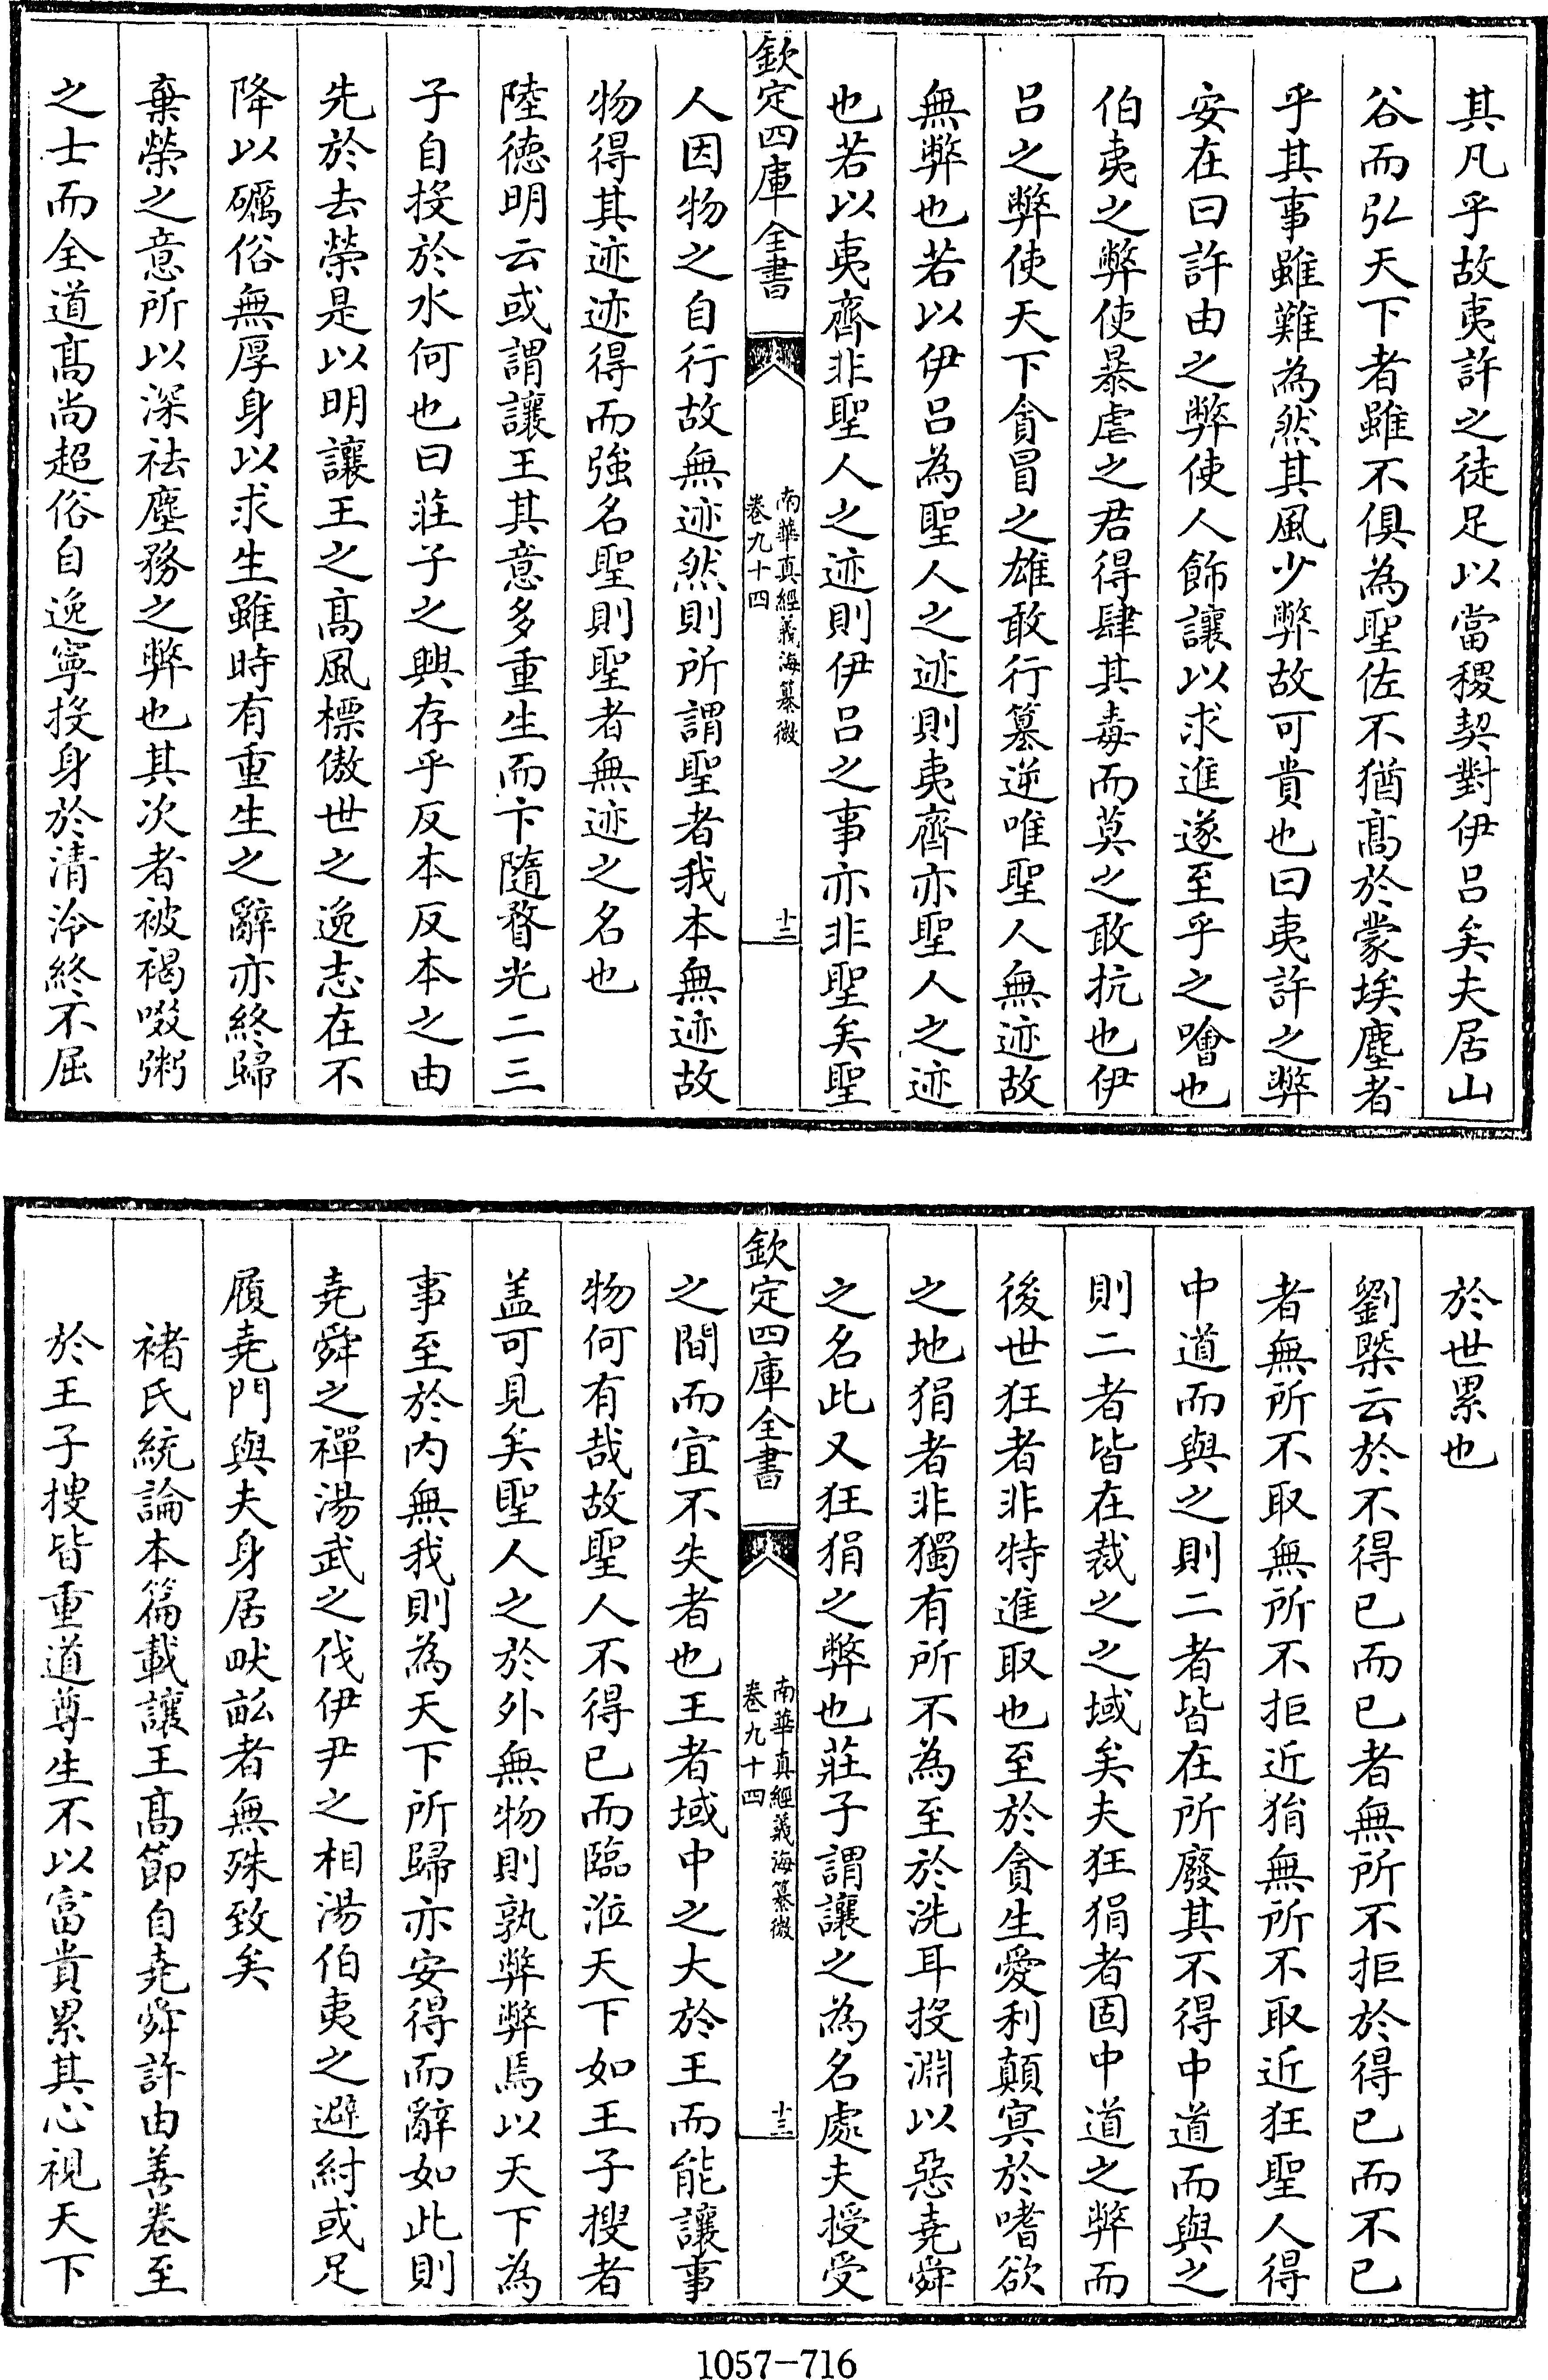 其凡乎故夷許之徒足以當稷契對伊呂矣夫居山
谷而弘天下者雖不俱為聖佐不猶髙於蒙埃塵者
乎其事雖難為然其風少弊故可貴也曰夷許之弊
安在曰許由之弊使人飾讓以求進遂至乎之噲也
伯夷之弊使暴虐之君得肆其毒而莫之敢抗也伊
呂之弊使天下貪冒之雄敢行簒逆唯聖人無迹故
無弊也若以伊呂為聖人之迹則夷齊亦聖人之迹
也若以夷齊非聖人之迹則伊呂之事亦非聖矣聖
欽定四庫全書
南華真經義海纂微
卷九十四
十二
人因物之自行故無迹然則所謂聖者我本無迹故
物得其迹迹得而強名聖則聖者無迹之名也
陸徳明云或謂讓王其意多重生而卞隨瞀光二三
子自投於水何也曰莊子之興存乎反本反本之由
先於去榮是以明讓王之髙風標傲世之逸志在不
降以礪俗無厚身以求生雖時有重生之辭亦終歸
棄榮之意所以深祛塵務之弊也其次者被褐啜粥
之士而全道髙尚超俗自逸寧投身於清泠終不屈
於世累也
劉槩云於不得已而已者無所不拒於得已而不已
者無所不取無所不拒近狷無所不取近狂聖人得
中道而與之則二者皆在所廢其不得中道而與之
則二者皆在裁之之域矣夫狂狷者固中道之弊而
後世狂者非特進取也至於貪生愛利顛㝠於嗜欲
之地狷者非獨有所不為至於洗耳投淵以惡堯舜
之名此又狂狷之弊也莊子謂讓之為名處夫授受
欽定四庫全書
南華真經義海纂微
卷九十四
十三
之間而宜不失者也王者域中之大於王而能讓事
物何有哉故聖人不得已而臨涖天下如王子搜者
盖可見矣聖人之於外無物則孰弊弊焉以天下為
事至於内無我則為天下所歸亦安得而辭如此則
堯舜之禪湯武之伐伊尹之相湯伯夷之避紂或足
履堯門與夫身居畎畝者無殊致矣
褚氏統論本篇載讓王髙節自堯舜許由善卷至
於王子搜皆重道尊生不以富貴累其心視天下
1057-716